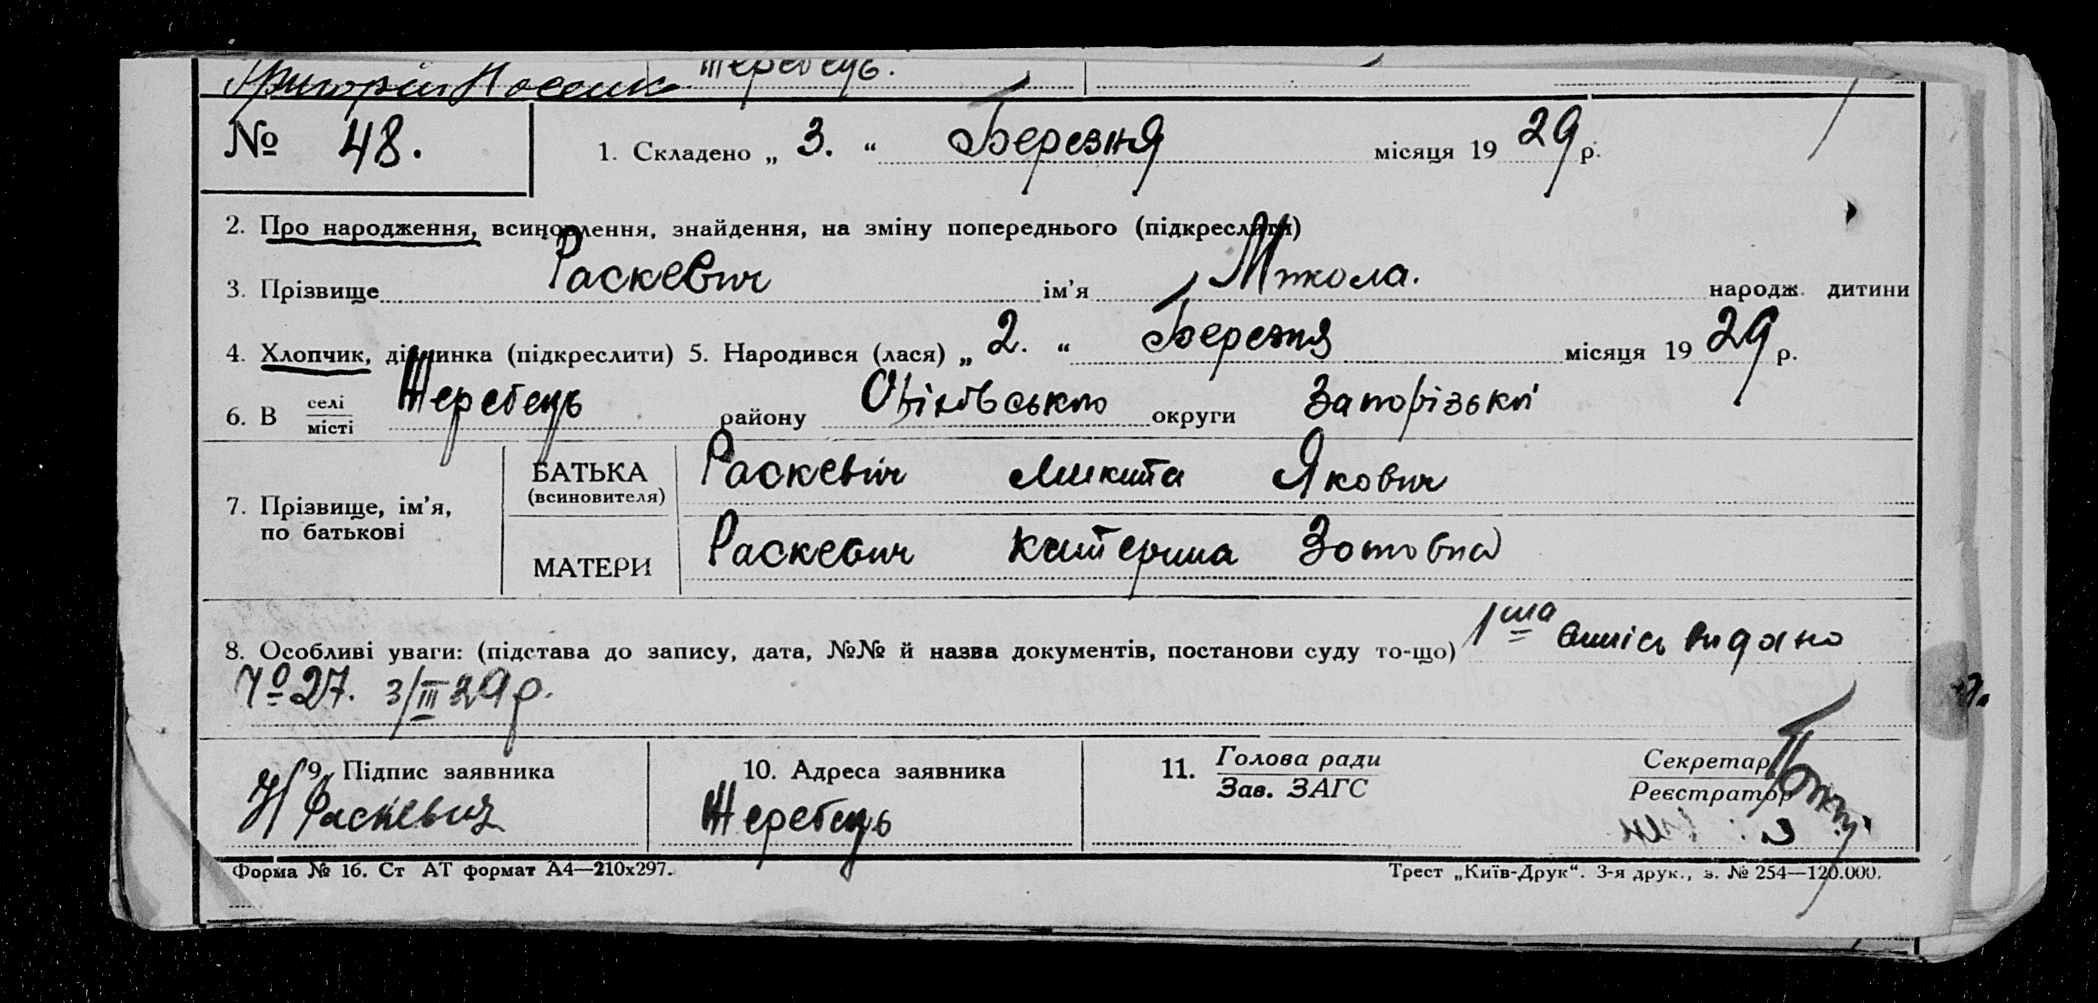 Григорій Носенко Жеребець.
№ 48. 1. Складено „ 3. “ Березня місяця 19 29 р.
2. Про народження, всиновлення, знайдення, на зміну попереднього (підкреслити)
3. Прізвище Раскевич ім'я Микола. народж. дитини
4. Хлопчик, дівчинка (підкреслити) 5. Народився (лася) „ 2. “ Березня місяця 19 29 р.
6. В селі місті Жеребець району Оріхівського округи Запорізької
7. Прізвище, ім'я, по батькові
БАТЬКА (всиновителя) Раскевич Микита Якович
МАТЕРИ Раскевич Катерина Зотовна
8. Особливі уваги: (підстава до запису, дата, №№ й назва документів, постанови суду то-що) 1ша випись видано
№ 27. 3/III 29 р.
9. Підпис заявника 10. Адреса заявника 11. Голова ради Зав. ЗАГС Секретар Реєстратор
Н Раскевич Жеребець
Форма № 16. Ст АТ формат А4—210х297. Трест „Київ-Друк“. 3-я друк., з. № 254—120.000.